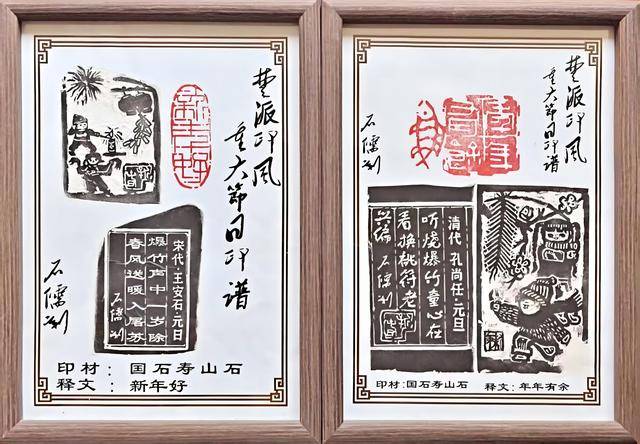 楚派印风
重大节日印谱
宋代·王安石·元日
爆竹声中一岁除
春风送暖入屠苏
石儒刻
石儒刻
印材：国石寿山石
释文：新年好
楚派印风
重大节日印谱
石儒刻
清代 孔尚任·元旦
听烧爆竹童心在
看换桃符老
兴偏 石儒刻
印材:国石寿山石 释文：年年有余